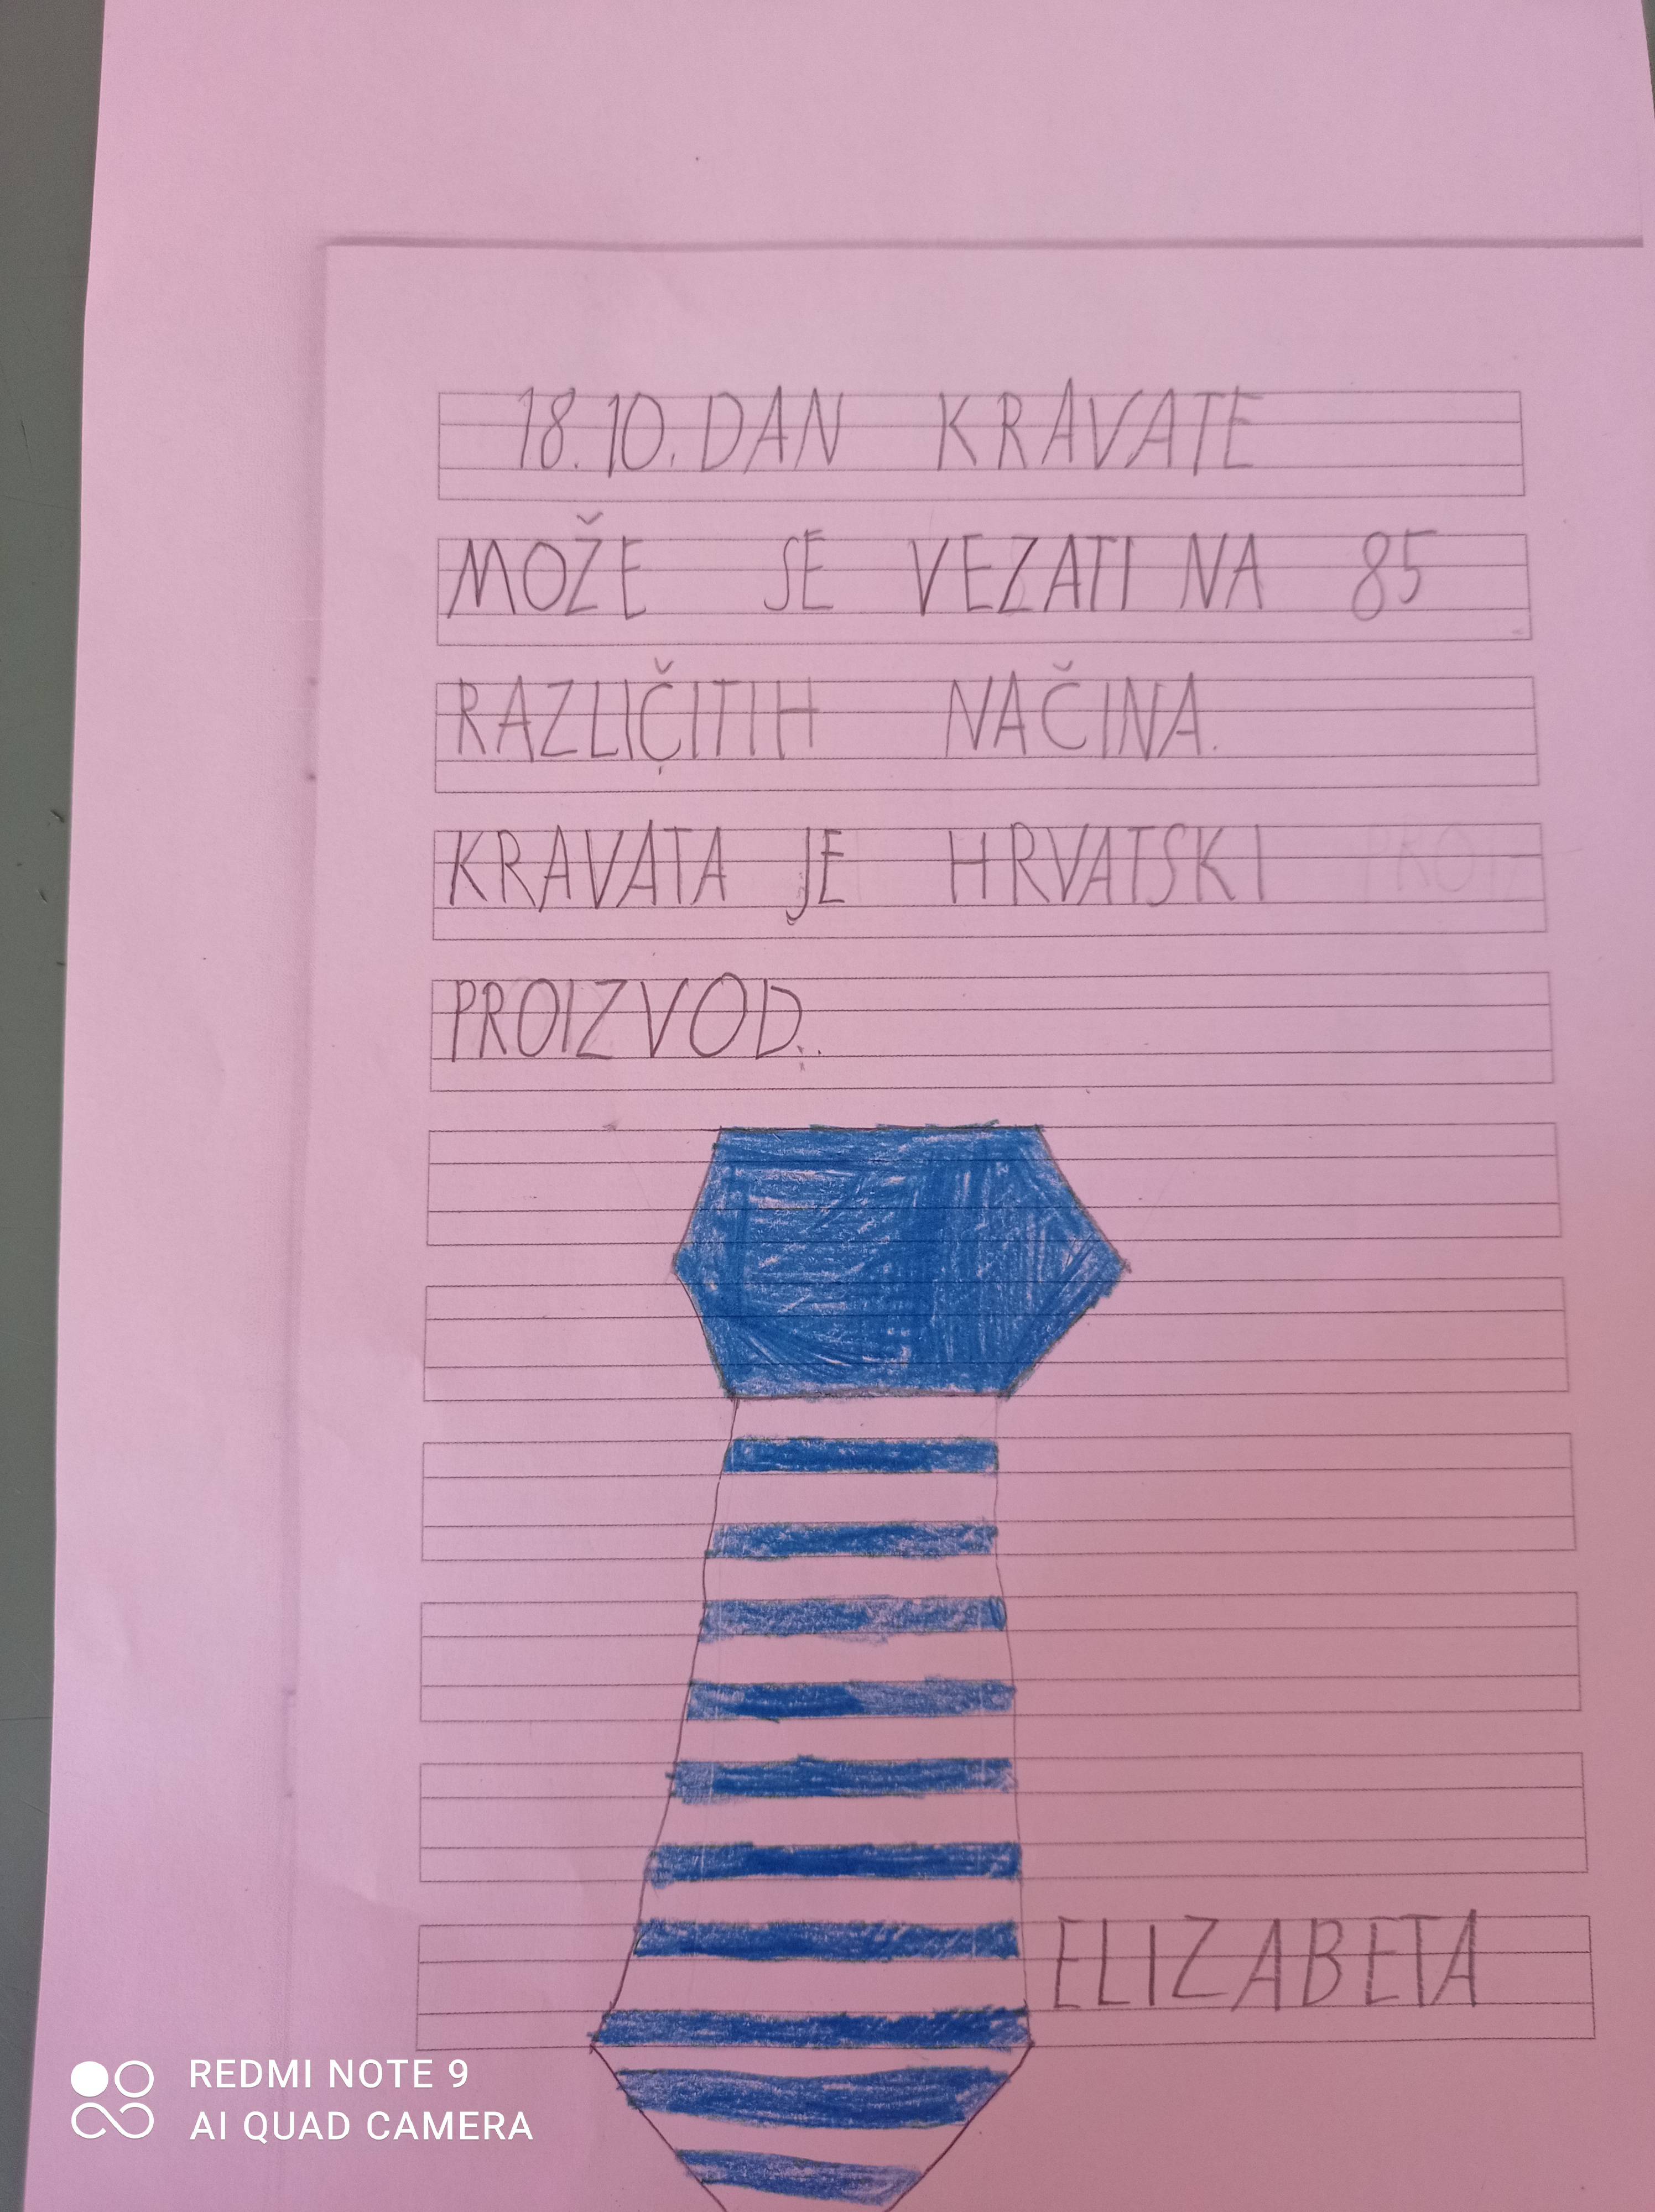 18.10. DAN KRAVATE
MOŽE SE VEZATI NA 85
RAZLIČITIH NAČINA.
KRAVATA JE HRVATSKI
PROIZVOD.
ELIZABETA
REDMI NOTE 9
AI QUAD CAMERA